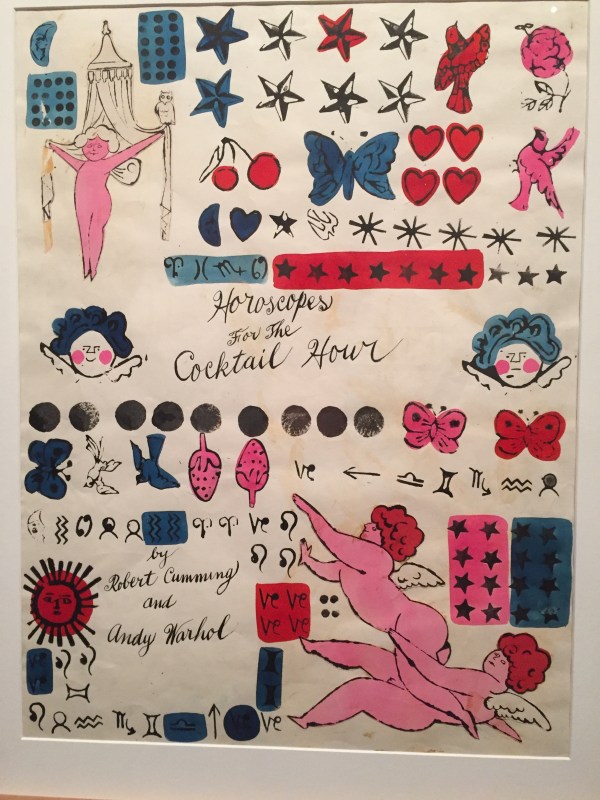 Horoscopes
For The
Cocktail Hour
by
Robert Cumming
and
Andy Warhol